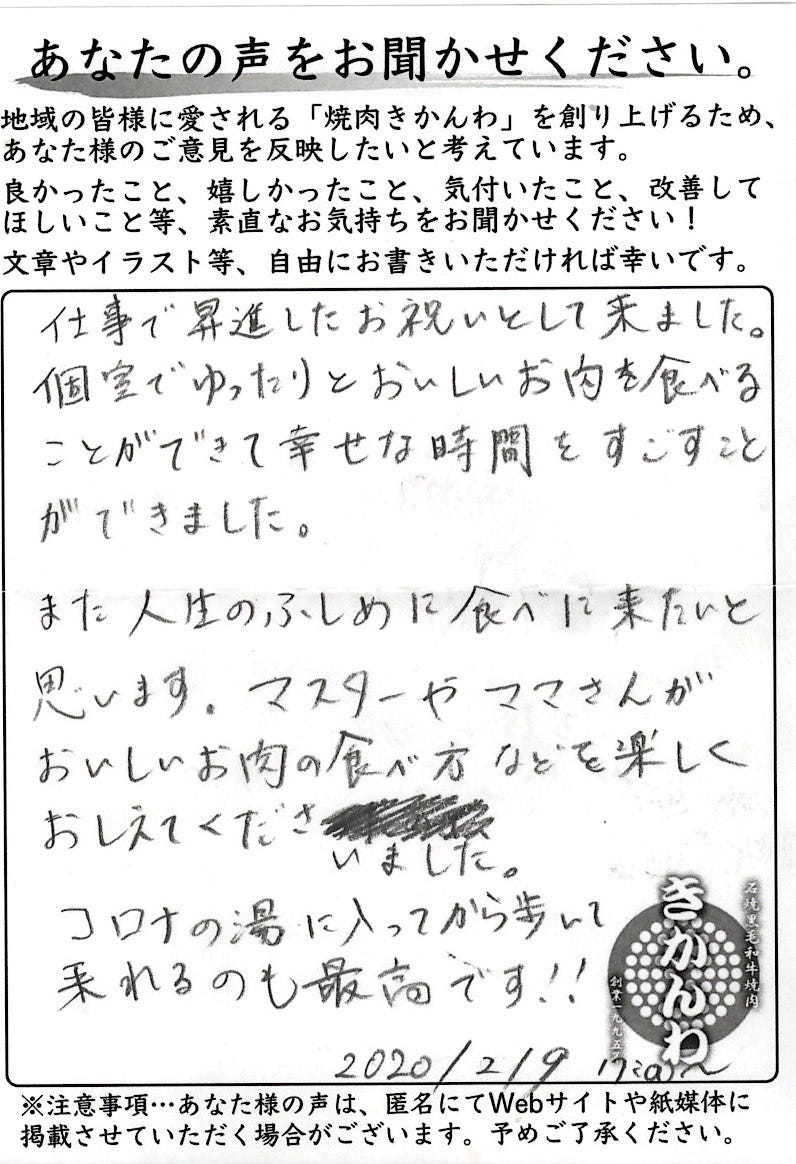 あなたの声をお聞かせください。
地域の皆様に愛される「焼肉きかんわ」を創り上げるため、
あなた様のご意見を反映したいと考えています。
良かったこと、嬉しかったこと、気付いたこと、改善して
ほしいこと等、素直なお気持ちをお聞かせください！
文章やイラスト等、自由にお書きいただければ幸いです。
仕事で昇進したお祝いとして来ました。
個室でゆったりとおいしいお肉を食べる
ことができて幸せな時間をすごすこと
ができました。
また人生のふしめに食べに来たいと
思います。マスターやママさんが
おいしいお肉の食べ方などを楽しく
おしえてくださ
いました。
コロナの湯に入ってから歩いて
来れるのも最高です!!
石焼黒毛和牛焼肉
きかんわ
2020/2/9
※注意事項…あなた様の声は、匿名にてWebサイトや紙媒体に
掲載させていただく場合がございます。予めご了承ください。